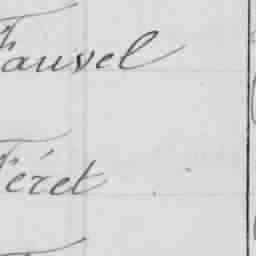 Fauvel
Féret